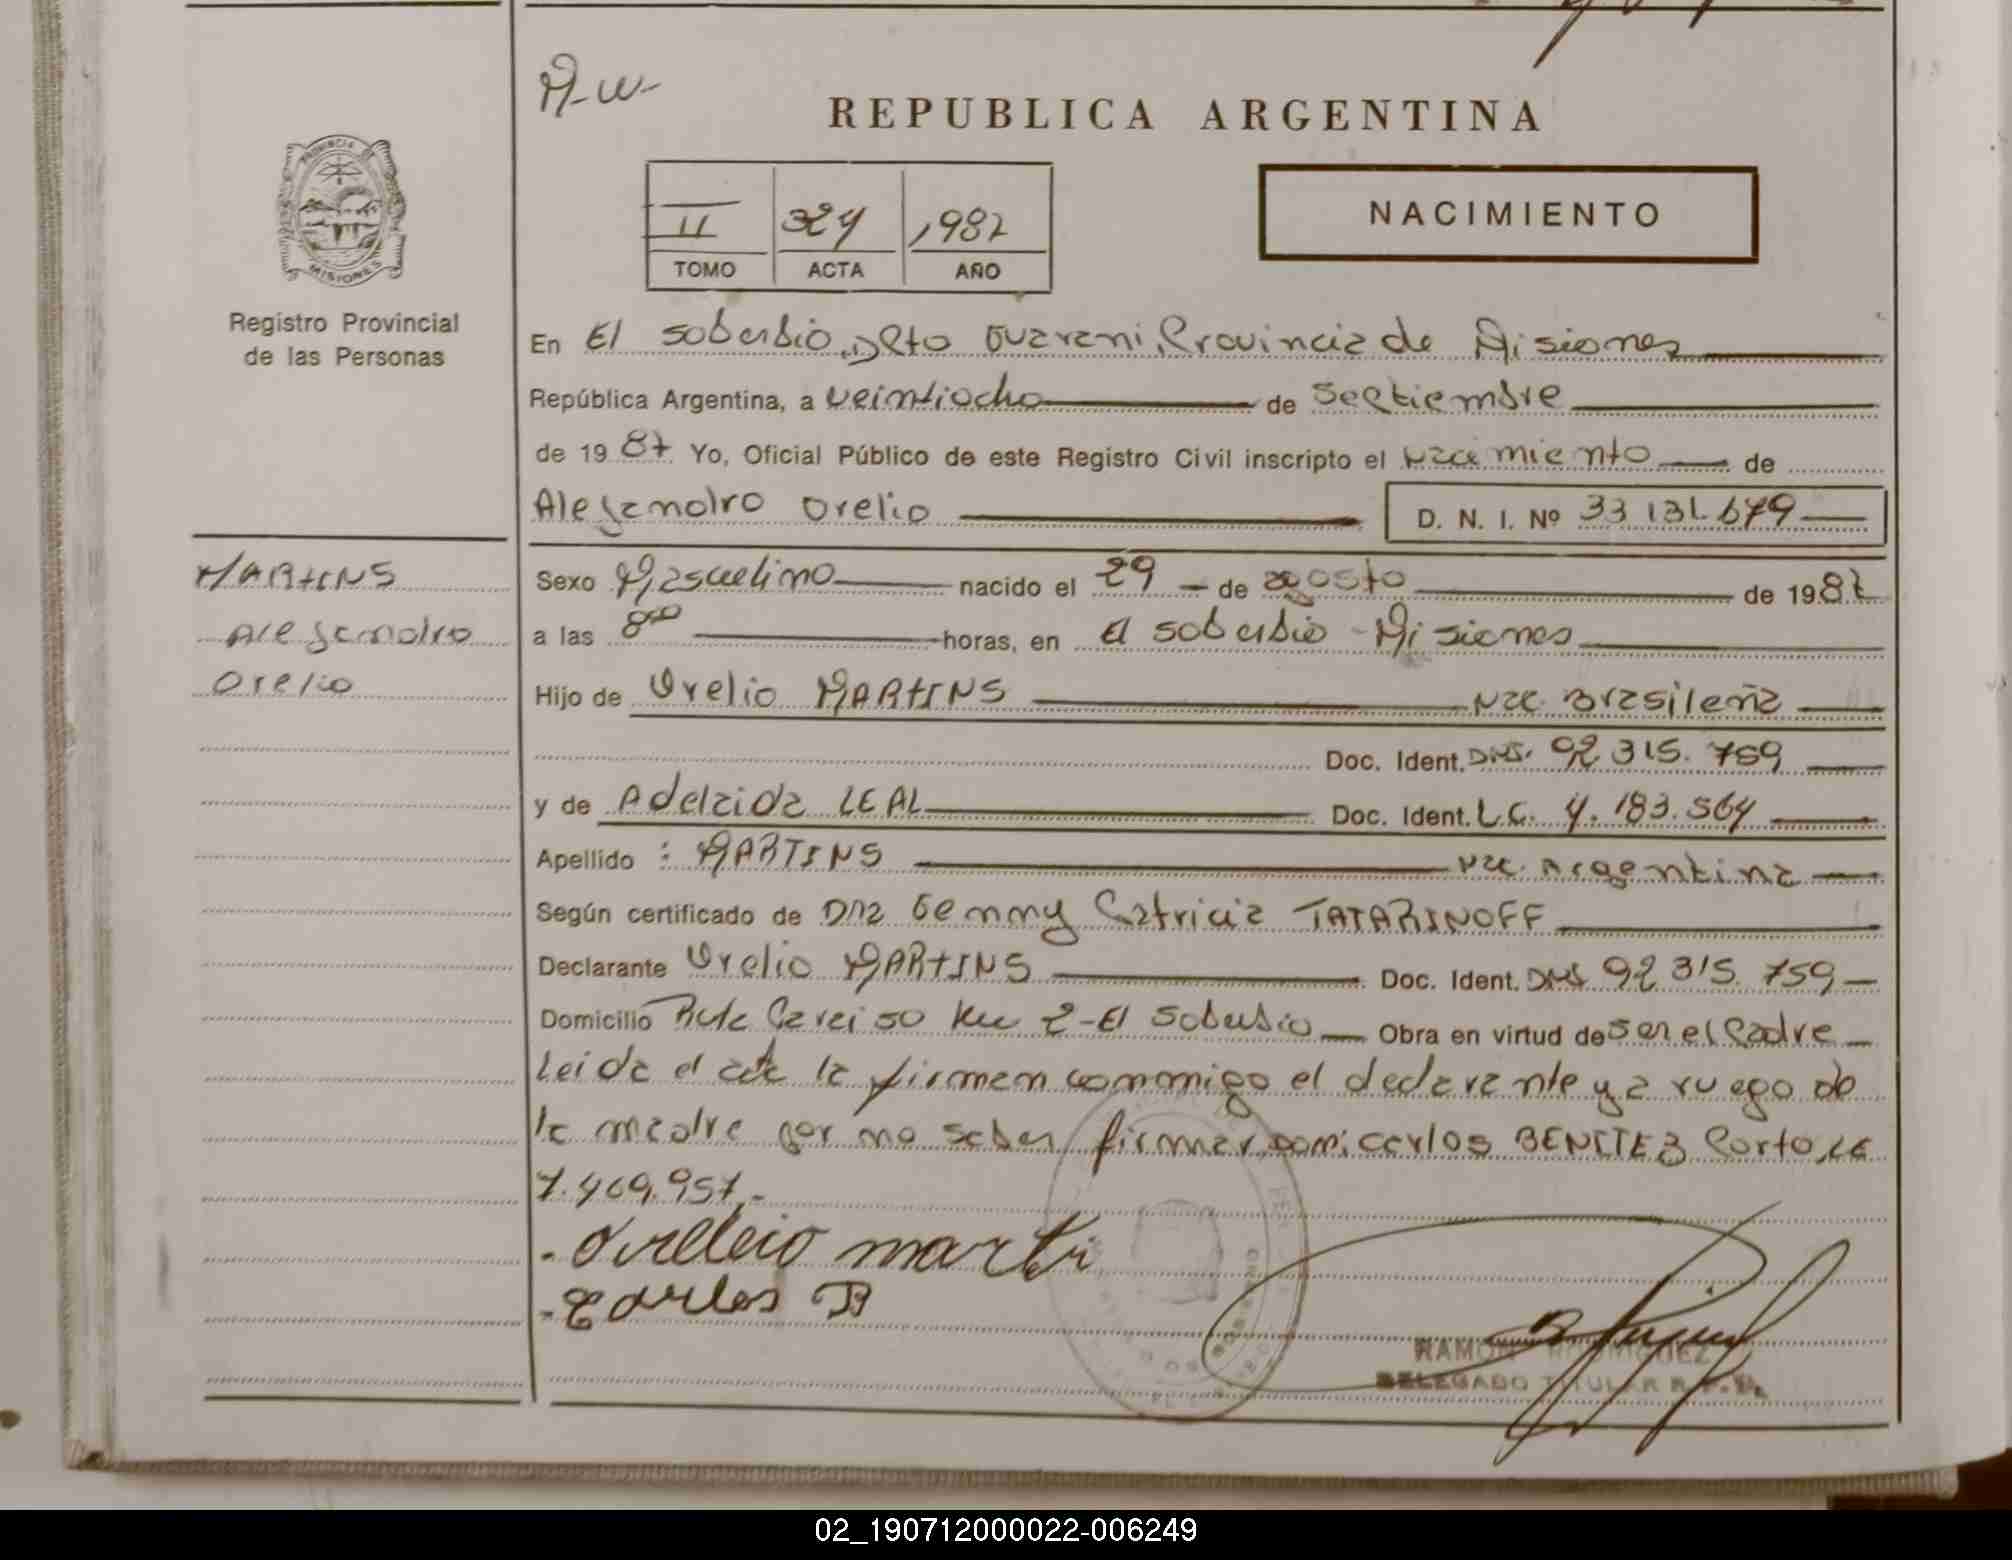 M-W-
REPUBLICA ARGENTINA
II 324 1987
TOMO ACTA AÑO
NACIMIENTO
PROVINCIA DE
MISIONES
Registro Provincial
de las Personas
En El Soberbio, Dpto Guarani, Provincia de Misiones
República Argentina, a veintiocho de Septiembre
de 1987 Yo, Oficial Público de este Registro Civil inscripto el Nacimiento de
Alejandro Orelio D. N. I. Nº 33 131 679
MARTINS
Alejandro
Orelio
Sexo Masculino nacido el 29 de agosto de 1987
a las 8⁰⁰ horas, en El Soberbio - Misiones
Hijo de Orelio MARTINS Nac. Brasileña
Doc. Ident. DNI. 92 315. 759
y de Adelaida LEAL Doc. Ident. L.C. 4. 183. 564
Apellido : MARTINS Nac. Argentina
Según certificado de Dra Genny Patricia TATARINOFF
Declarante Orelio MARTINS Doc. Ident. DNI 92 315. 759
Domicilio Ruta Paraiso Km 2 - El Soberbio Obra en virtud de ser el Padre
Leida el acta la firman conmigo el declarante y a ruego de
la madre por no saber firmar, domi. Carlos BENITEZ Porto, LE
7.469.957.-
Orelleio marti
Carlos B
RAMON RODRIGUEZ
DELEGADO TITULAR R.P.P.
02_190712000022-006249